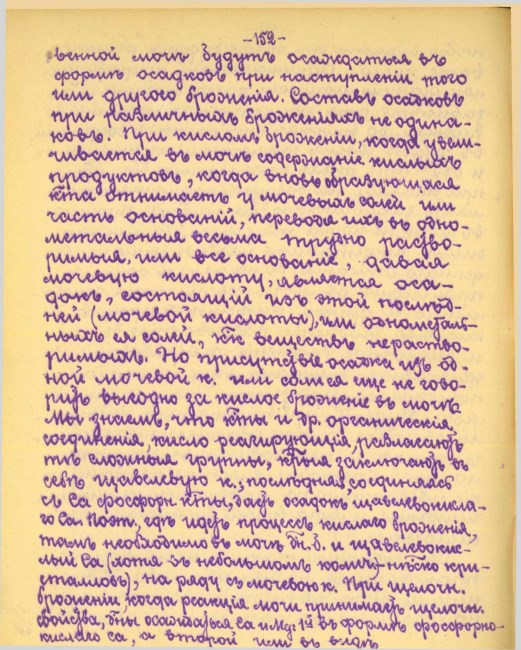 -152-
венной мочѣ будутъ осаждаться въ
формѣ осадковъ при наступленіи того
или другого броженія. Составъ осадковъ
при различныхъ броженіяхъ не одина-
ковъ. При кисломъ броженіи, когда увели-
чивается въ мочѣ содержаніе кислыхъ
продуктовъ, когда вновь образующаяся
к͠та отнимаетъ у мочевыхъ солей или
часть основаній, переводя ихъ въ одно-
метальныя весьма трудно раство-
римыя, или все основаніе, давая
мочевую кислоту, является оса-
докъ, состоящій изъ этой послѣд-
ней (мочевой кислоты), или однометаль-
ныхъ ея солей, к͠къ веществъ нераство-
римыхъ. Но присутствіе осадка изъ од-
ной мочевой к. или солей ея еще не гово-
ритъ выгодно за кислое броженіе въ мочѣ.
Мы знаемъ, что к͠ты и др. органическія
соединенія, кисло реагирующія, разлагаютъ
тѣ сложныя группы, к͠рыя заключаютъ въ
себѣ щавелевую к., послѣдняя, соединяясь
съ Ca фосфорн. к͠ты, даетъ осадокъ щавелевокисла-
го Ca. Поэт., гдѣ идетъ процессъ кислаго броженія,
тамъ необходимо въ мочѣ д.б. и щавелевокис-
лый Ca (хотя въ небольшомъ колич.-нѣско кри-
сталловъ), на ряду съ мочевою к. При щелочн.
броженіи, когда реакція мочи принимаетъ щелочн.
свойства, б͠ны осаждаться Ca и Mg: 1й въ формѣ фосфорно-
кислаго Ca, а второй или въ видѣ